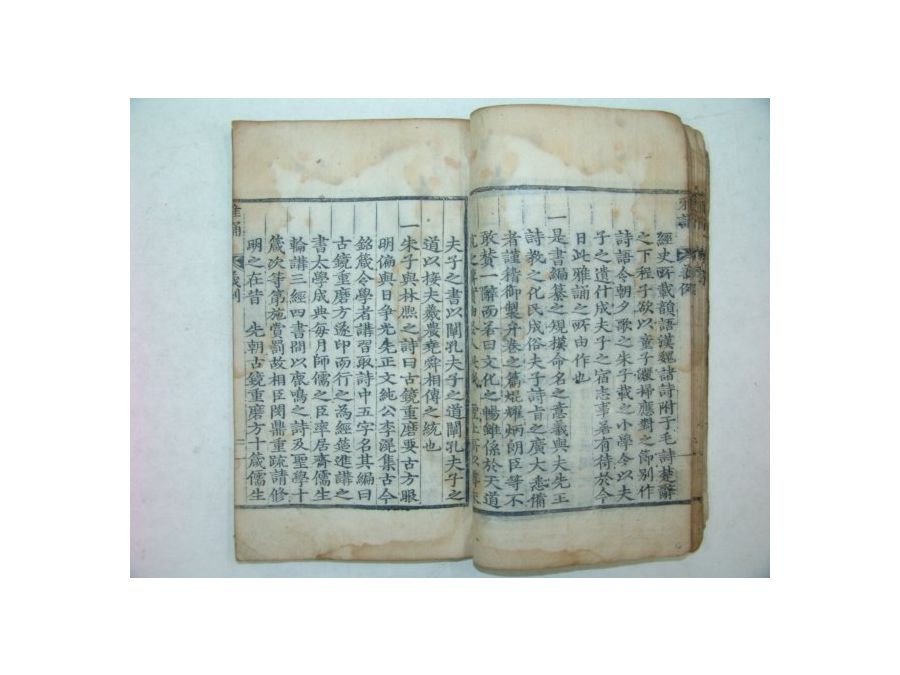 雅誦
義例
經史所載韻語漢魏諸詩附于毛詩楚辭
之下程子欲以童子灑掃應對之節別作
詩語令朝夕歌之朱子載之小學今以夫
子之遺什成夫子之宿志事若有待於今
日此雅誦之所由作也
一是書編纂之規模命名之意義與夫先王
詩教之化民成俗夫子詩旨之廣大悉備
者謹徛御製弁卷之篇焜燿炳朗臣等不
敢贊一辭而若曰文化之暢雖係於天道
夫子之書以闡孔夫子之道闡孔夫子之
道以接夫羲農堯舜相傳之統也
一朱子與林熙之詩曰古鏡重磨要古方眼
明偏與日爭光先正文純公李滉集古今
銘箴令學者講習取詩中五字名其編曰
古鏡重磨方遂印而行之為經筵進講之
書太學成典每月師儒之臣率居齋儒生
輪講三經四書間以鹿鳴之詩及聖學十
箴次等第施賞罰故相臣閔鼎重疏請修
明之在昔 先朝古鏡重磨方十箴儒生
雅誦
義例
二